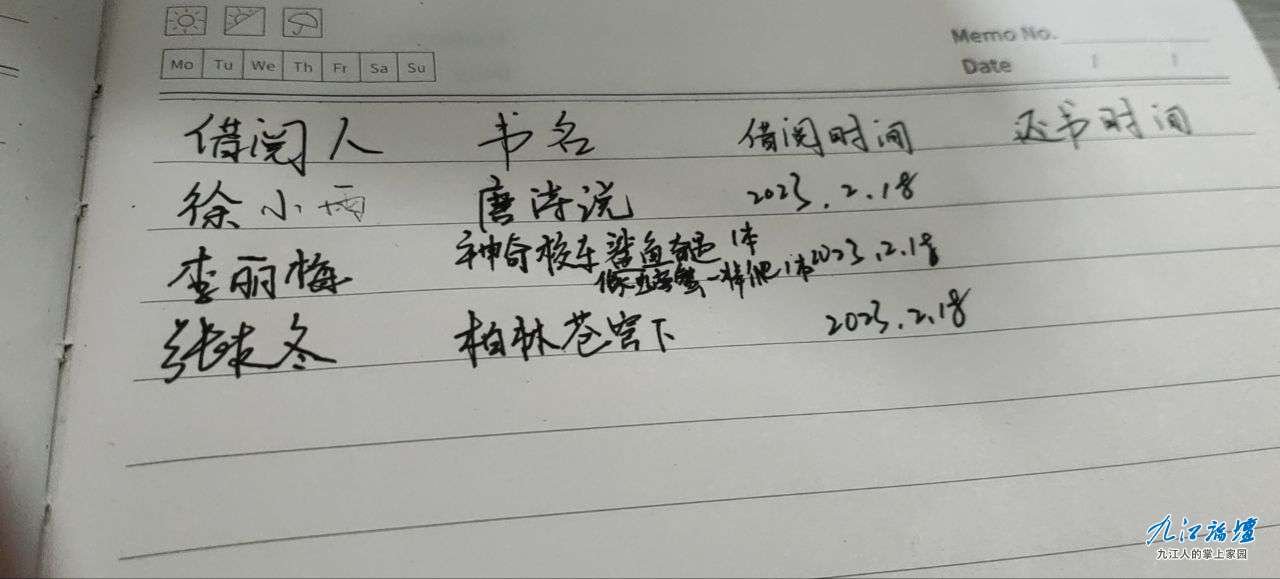 Memo No.
Mo Tu We Th Fr Sa Su
Date
借阅人 书名 借阅时间 还书时间
徐小雨 唐诗说 2023.2.18
李丽梅 神奇校车鲨鱼奇遇1本 2023.2.18
像只螃蟹一样爬1本
张冬 柏林苍穹下 2023.2.18
九江论坛
九江人的掌上家园